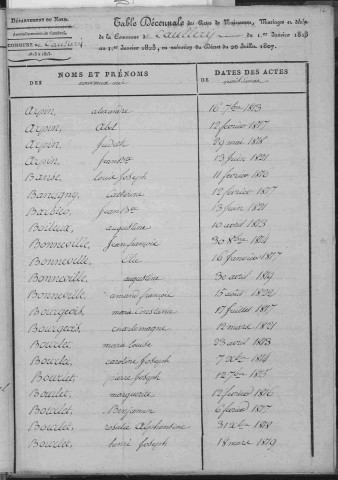 Département du Nord.
Arrondissement de Cambrai.
COMMUNE de Caullery
1813 à 1823.
Table Décennale des Actes de Naissances, Mariages et décès
de la Commune de Caullery du 1.er Janvier 1813
au 1.er Janvier 1823, en exécution du Décret du 20 Juillet 1807.
NOMS ET PRÉNOMS
DES
DATES DES ACTES
DE
Arpin, 16 7bre 1813
Arpin, Abel 12 février 1817
Arpin, Judith 29 mai 1818
Arpin, jean Bte 13 juin 1821
Banse, louis Joseph 11 février 1816
Bantigny, Catherine 12 février 1817
Barbler, jean Bte 13 juin 1821
Boileux, augustine 10 avril 1813
Bonneville, jean françois 30 8bre 1814
Bonneville, Elie 16 janvier 1817
Bonneville, augustine 30 avril 1819
Bonneville, amand françois 15 août 1822
Bourgeois, marie Constance 17 juillet 1817
Bourgeois, charlemagne 12 mars 1821
Bourlet, marie louise 23 avril 1813
Bourlet, caroline Joseph 7 1814
Bourlet, pierre Joseph 12 7bre 1815
Bourlet, marguerite 12 février 1816
Bourlet, Benjamin 6 février 1817
Bourlet, rosalie Alphantine 31 1818
Bourlet, henri Joseph 18 mars 1819